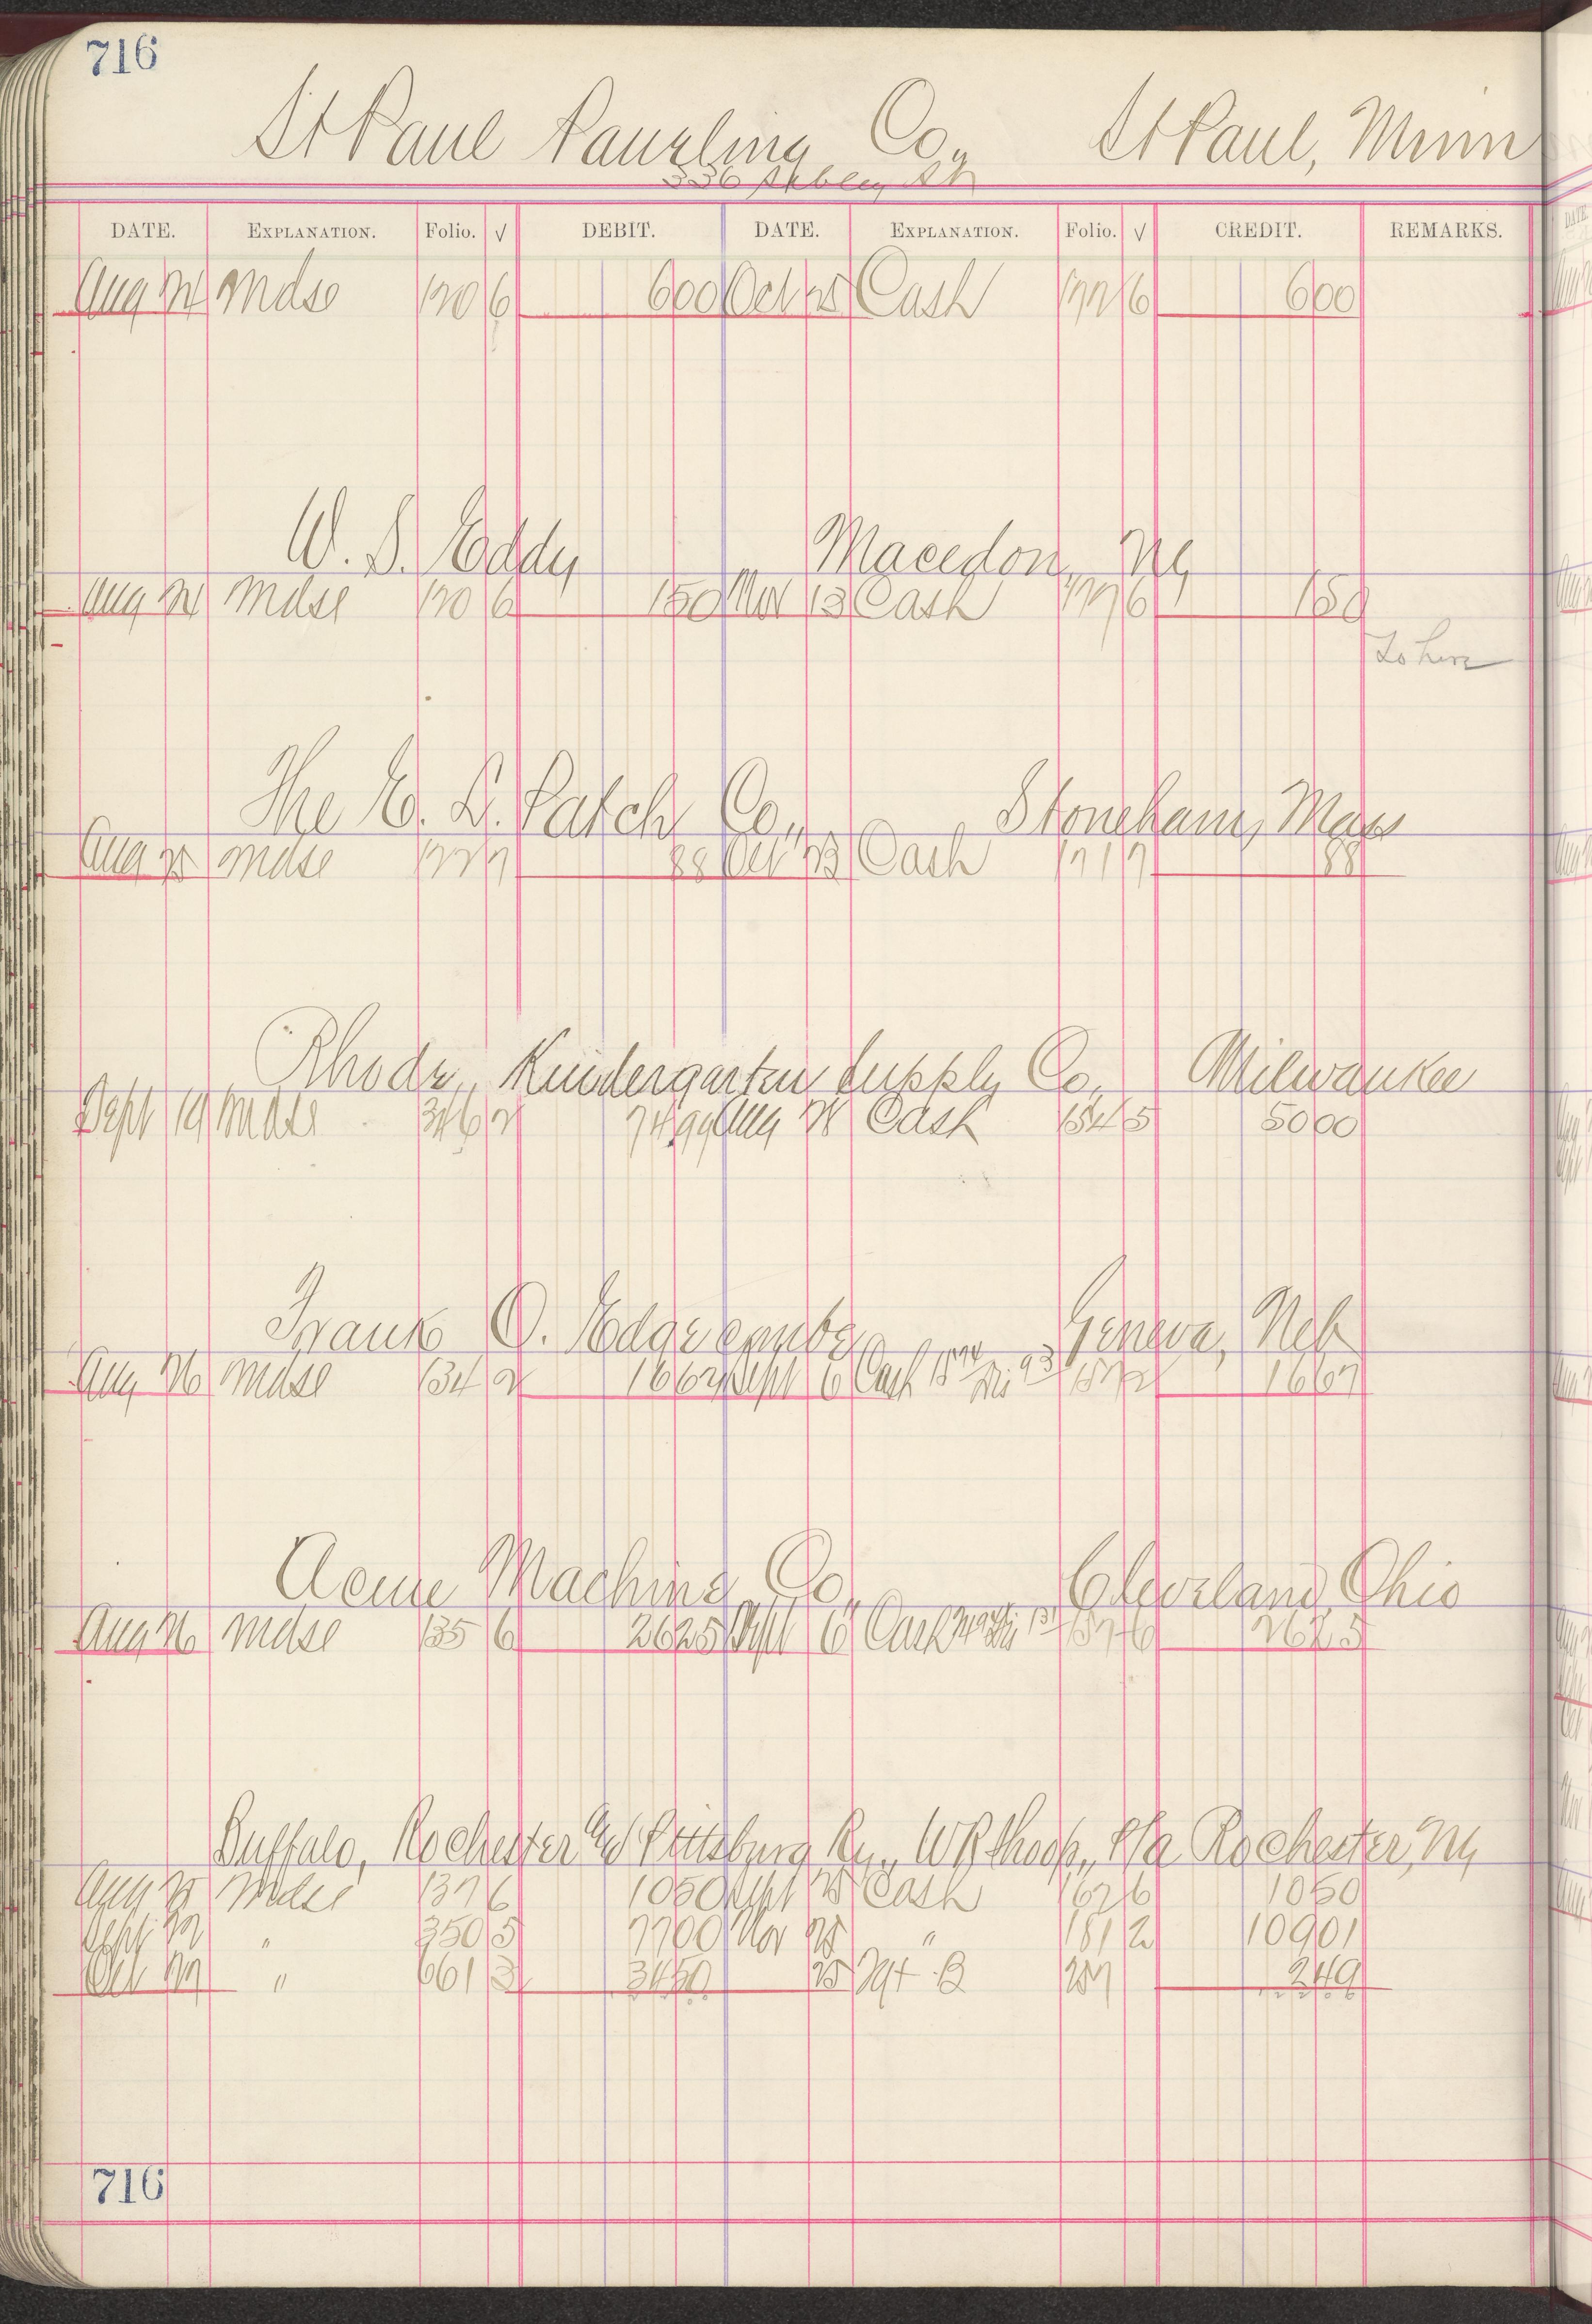 716
St Paul Co., St Paul, Minn
336 Sibley St
DATE. EXPLANATION. Folio. √ DEBIT. DATE. EXPLANATION. Folio. √ CREDIT. REMARKS.
Aug 24 Mdse 120 6 600 Oct 25 Cash 172 6 600
W. S. Eddy Macedon, NY
Aug 24 Mdse 120 6 150 Nov 13 Cash 177 6 150
The E. L. Patch Co., Stoneham, Mass
Aug 25 Mdse 127 7 88 Oct 23 Cash 171 7 88
Rhode Kindergarten Supply Co., Milwaukee
Sept 19 Mdse 346 2 7499 Aug Cash 154 5 5000
Frank O. Edgecombe Geneva, Neb
Aug 26 Mdse 134 2 1667 Sept 6 Cash 157 2 1667
Acme Machine Co., Cleveland, Ohio
Aug 26 Mdse 135 6 2625 Sept 6 Cash 157 6 2625
Buffalo, Rochester & Pittsburg Ry., Rochester, NY
Aug 25 Mdse 137 6 1050 Sept 25 Cash 162 6 1050
Sept 22 " 350 5 7700 Nov 25 " 181 2 10901
Oct 27 " 661 3 3450 25 257 249
716